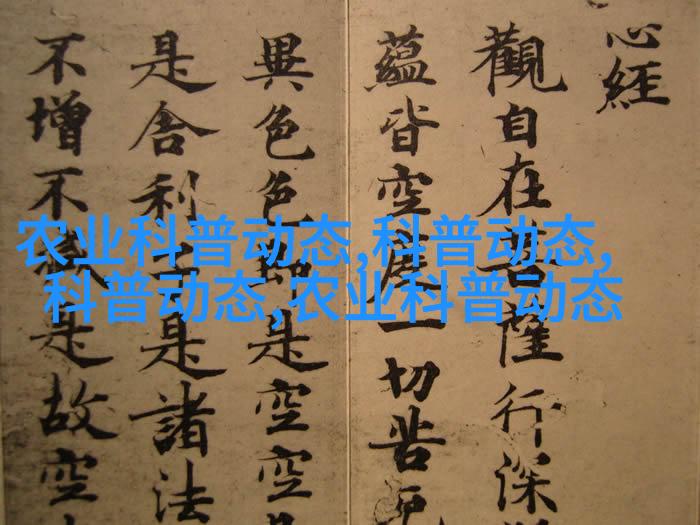 心經
觀自在菩薩行深
蘊皆空度一切苦厄
異色色即是空空是
是舍利子是諸法
不增不減是故空
农业科普动态,科普动态,
科普动态,农业科普动态